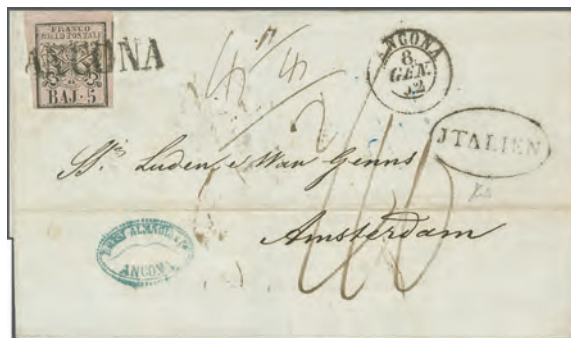 FRANCO
BOLLO POSTALE
BAJ. 5
ANCONA
ANCONA
8
GEN.
52
JTALIEN
Ss.rs Luden e Wan Genns
Amsterdam
ANCONA